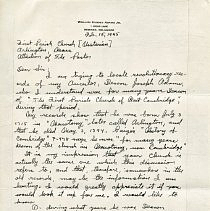 William Everec Adams Jr.
Feb. 15, 1945
First Parish Church (Unitarian)
Arlington, Mass.
Attention of The Pastor
Dear Sir:
I am trying to locate revolutionary
of my ancestor, Deacon Joseph Adams
who I understand was for many years Deacon
of "The First Parish Church of East Cambridge,"
during that period.
My records show that he was born July 3
1715 in "Menotomy," later called Arlington, and
that he died May 2, 1794. Paige's "History of
Cambridge" p. 478 says he was "for many years
Deacon of the church in Menotomy, now Cambridge."
It is my impression that your Church is
actually the same one to which this
refers to, and that therefore, somewhere in the
old records may be the information I am
hunting. I would greatly appreciate it if you
would look it up for me. I would like to
know:
① during what years he was Deacon